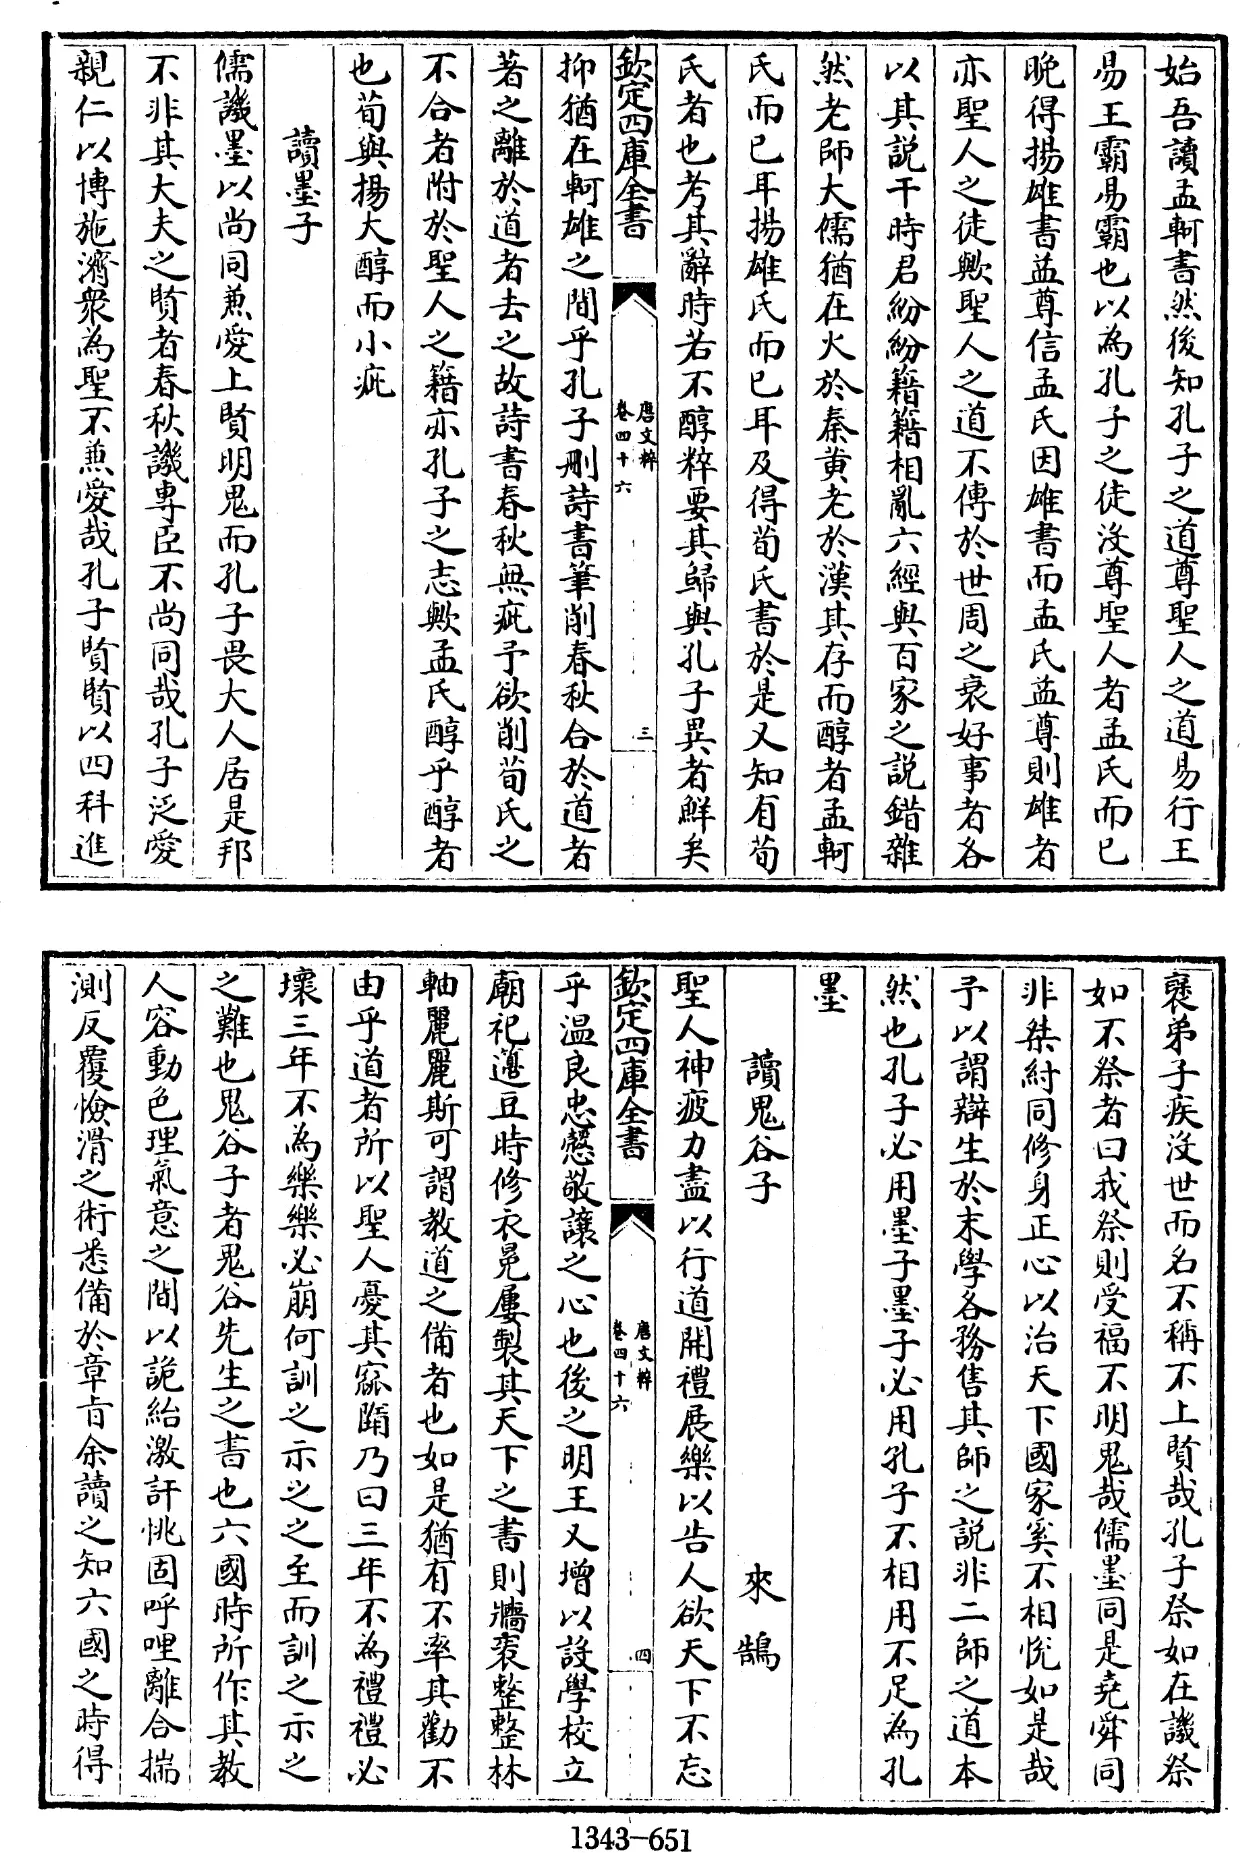 始吾讀孟軻書然後知孔子之道尊聖人之道易行王
易王霸易霸也以為孔子之徒沒尊聖人者孟氏而已
晚得揚雄書益尊信孟氏因雄書而孟氏益尊則雄者
亦聖人之徒歟聖人之道不傳於世周之衰好事者各
以其説干時君紛紛籍籍相亂六經與百家之説錯雜
然老師大儒猶在火於秦黄老於漢其存而醇者孟軻
氏而已耳揚雄氏而已耳及得荀氏書於是又知有荀
氏者也考其辭時若不醇粹要其歸與孔子異者鮮矣
欽定四庫全書
唐文粹
卷四十六
三
抑猶在軻雄之間乎孔子刪詩書筆削春秋合於道者
著之離於道者去之故詩書春秋無疵予欲削荀氏之
不合者附於聖人之籍亦孔子之志歟孟氏醇乎醇者
也荀與揚大醇而小疵
讀墨子
儒譏墨以尚同兼愛上賢明鬼而孔子畏大人居是邦
不非其大夫之賢者春秋譏專臣不尚同哉孔子泛愛
親仁以博施濟衆為聖不兼愛哉孔子賢賢以四科進
褒弟子疾沒世而名不稱不上賢哉孔子祭如在譏祭
如不祭者曰我祭則受福不明鬼哉儒墨同是堯舜同
非桀紂同修身正心以治天下國家奚不相悦如是哉
予以謂辯生於末學各務售其師之説非二師之道本
然也孔子必用墨子墨子必用孔子不相用不足為孔
墨
讀鬼谷子 來鵠
聖人神疲力盡以行道開禮展樂以告人欲天下不忘
欽定四庫全書
唐文粹
卷四十六
四
乎温良忠慤敬讓之心也後之明王又增以設學校立
廟祀籩豆時修衣冕屢製其天下之書則牆褒整整林
軸麗麗斯可謂教道之備者也如是猶有不率其勸不
由乎道者所以聖人憂其窳隋乃曰三年不為禮禮必
壞三年不為樂樂必崩何訓之示之之至而訓之示之
之難也鬼谷子者鬼谷先生之書也六國時所作其教
人容動色理氣意之間以詭紿激訐恌固呼哩離合揣
測反覆憸滑之術悉備於章旨余讀之知六國之時得
1343-651